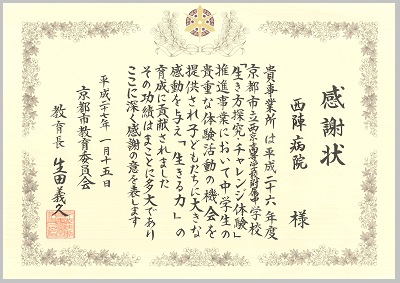 感謝状
西陣病院 様
貴事業所は平成二十六年度
京都市立西京高等学校附属中学校
「生き方探究・チャレンジ体験」
推進事業において中学生の
貴重な体験活動の機会を
提供され子どもたちに大きな
感動を与え「生きる力」の
育成に貢献されました
その功績はまことに多大であり
ここに深く感謝の意を表します
平成二十七年一月十五日
京都市教育委員会
教育長 生田義久